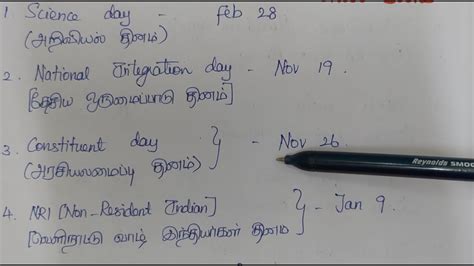 1 Science day - feb 28
(அறிவியல் தினம்)
2. National Integration day - Nov 19.
[தேசிய ஒருமைப்பாடு தினம்]
3. Constituent day - Nov 26
(அரசியலமைப்பு தினம்)
Reynolds SMOO
4. NRI [Non-Resident Indian] - Jan 9.
[வெளிநாடு வாழ் இந்தியர்கள் தினம்